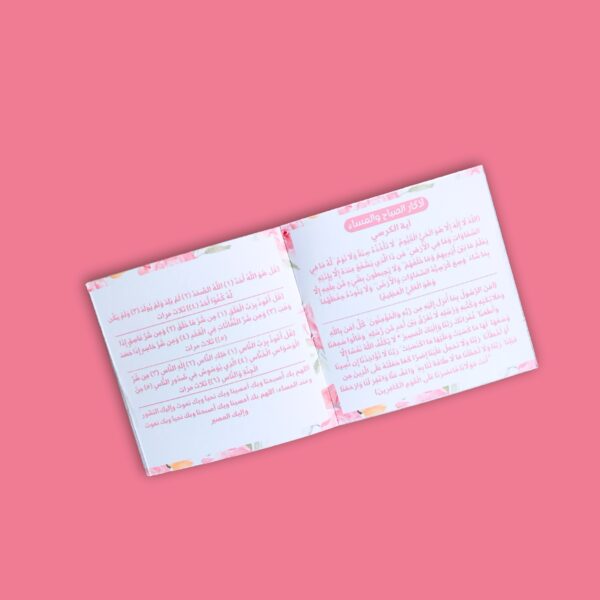 أذكار الصباح والمساء
آية الكرسي
(اللَّهُ لَا إِلَٰهَ إِلَّا هُوَ الْحَيُّ الْقَيُّومُ لَا تَأْخُذُهُ سِنَةٌ وَلَا نَوْمٌ لَهُ مَا فِي
السَّمَاوَاتِ وَمَا فِي الْأَرْضِ مَن ذَا الَّذِي يَشْفَعُ عِندَهُ إِلَّا بِإِذْنِهِ
يَعْلَمُ مَا بَيْنَ أَيْدِيهِمْ وَمَا خَلْفَهُمْ وَلَا يُحِيطُونَ بِشَيْءٍ مِّنْ عِلْمِهِ إِلَّا
بِمَا شَاءَ وَسِعَ كُرْسِيُّهُ السَّمَاوَاتِ وَالْأَرْضَ وَلَا يَئُودُهُ حِفْظُهُمَا
وَهُوَ الْعَلِيُّ الْعَظِيمُ)
(آمَنَ الرَّسُولُ بِمَا أُنزِلَ إِلَيْهِ مِن رَّبِّهِ وَالْمُؤْمِنُونَ كُلٌّ آمَنَ بِاللَّهِ
وَمَلَائِكَتِهِ وَكُتُبِهِ وَرُسُلِهِ لَا نُفَرِّقُ بَيْنَ أَحَدٍ مِّن رُّسُلِهِ وَقَالُوا سَمِعْنَا
وَأَطَعْنَا غُفْرَانَكَ رَبَّنَا وَإِلَيْكَ الْمَصِيرُ * لَا يُكَلِّفُ اللَّهُ نَفْسًا إِلَّا
وُسْعَهَا لَهَا مَا كَسَبَتْ وَعَلَيْهَا مَا اكْتَسَبَتْ رَبَّنَا لَا تُؤَاخِذْنَا إِن نَّسِينَا
أَوْ أَخْطَأْنَا رَبَّنَا وَلَا تَحْمِلْ عَلَيْنَا إِصْرًا كَمَا حَمَلْتَهُ عَلَى الَّذِينَ مِن
قَبْلِنَا رَبَّنَا وَلَا تُحَمِّلْنَا مَا لَا طَاقَةَ لَنَا بِهِ وَاعْفُ عَنَّا وَاغْفِرْ لَنَا وَارْحَمْنَا
أَنتَ مَوْلَانَا فَانصُرْنَا عَلَى الْقَوْمِ الْكَافِرِينَ)
(قُلْ هُوَ اللَّهُ أَحَدٌ (١) اللَّهُ الصَّمَدُ (٢) لَمْ يَلِدْ وَلَمْ يُولَدْ (٣) وَلَمْ يَكُن
لَّهُ كُفُوًا أَحَدٌ (٤)) ثلاث مرات
(قُلْ أَعُوذُ بِرَبِّ الْفَلَقِ (١) مِن شَرِّ مَا خَلَقَ (٢) وَمِن شَرِّ غَاسِقٍ إِذَا
وَقَبَ (٣) وَمِن شَرِّ النَّفَّاثَاتِ فِي الْعُقَدِ (٤) وَمِن شَرِّ حَاسِدٍ إِذَا حَسَدَ
(٥)) ثلاث مرات
(قُلْ أَعُوذُ بِرَبِّ النَّاسِ (١) مَلِكِ النَّاسِ (٢) إِلَٰهِ النَّاسِ (٣) مِن شَرِّ
الْوَسْوَاسِ الْخَنَّاسِ (٤) الَّذِي يُوَسْوِسُ فِي صُدُورِ النَّاسِ (٥) مِنَ
الْجِنَّةِ وَالنَّاسِ (٦)) ثلاث مرات
اللهم بك أصبحنا وبك أمسينا وبك نحيا وبك نموت وإليك النشور
وعند المساء: اللهم بك أمسينا وبك أصبحنا وبك نحيا وبك نموت
وإليك المصير